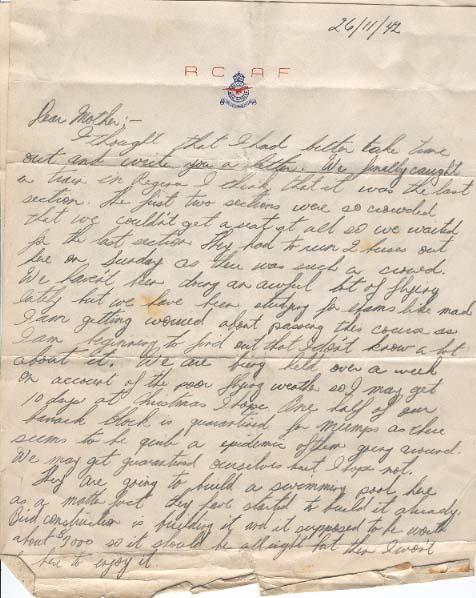 26/11/42
R C A F
Dear Mother:-
I thought that I had better take time
out and write you a letter. We finally caught
a train in Regina I think that it was the last
section. The first two sections were so crowded
that we couldn't get a seat at all so we waited
for the last section. They had to run 2 buses out
here on Sunday as there was such a crowd.
We haven't been doing an awful lot of flying
lately but we have been studying for exams like mad
I am getting worried about passing this course as
I am beginning to find out that I don't know a lot
about it. We are being held over a week
on account of the poor flying weather so I may get
10 days at Christmas I hope. One half of our
barrack block is quarantined for mumps as there
seems to be quite a epidemic of them going around.
We may get quarantined ourselves but I hope not.
They are going to build a swimming pool here
as a matter fact they have started to build it already.
Bird construction is building it and it supposed to be worth
about 000 so it should be allright but then I won't
here to enjoy it